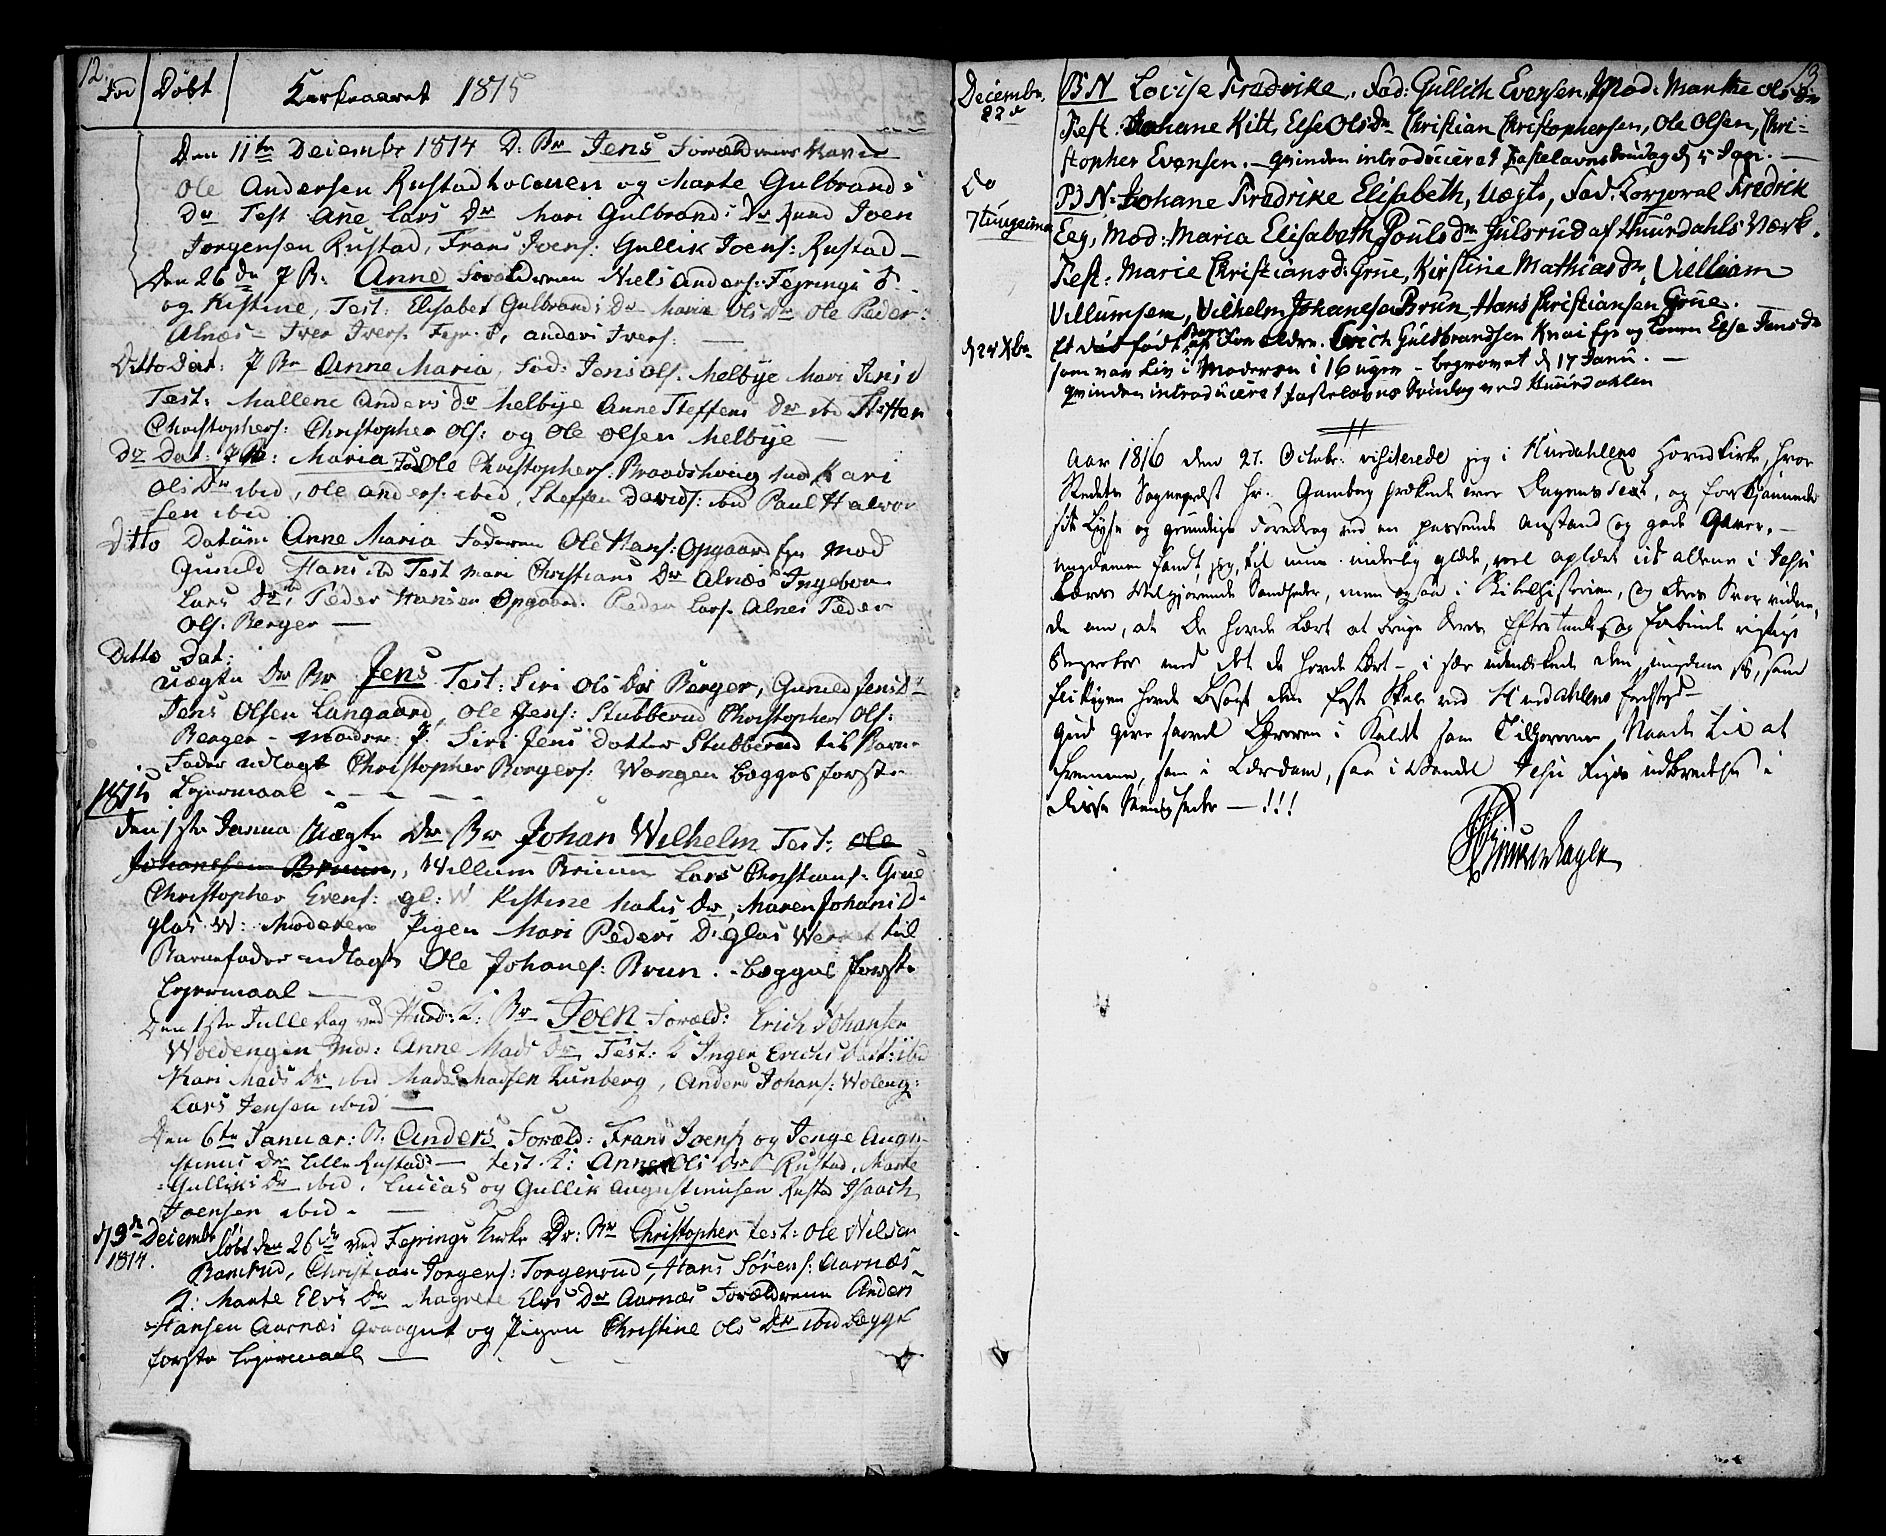 12.
Fød Døbt Kirkeaaret 1815
Den 11te Decembr 1814 D. Br Jens Forældrenes Navn
Ole Andersen Rustadholenen og Marte Gulbrands
Dr Test Ane Lars Dr Mari Gulbrands Dr Knud Joen
Jorgensen Rustad, Frans Joens: Gullik Joens: Rustad
Den 26de J B: Anne Forældrenne Niels Anders: Fejrings E.
og Kistine, Test: Elisabet Gulbrands Dr Maria Ols Dr Ole Peder:
Alnæs - Iver Ivers. Fejr. E, anders Ivers:
Ditto Dat: J Br Anne Maria, Fod: Jens Ols. Melbye Mari Jens d
Test: Mallene Anders dr Melbye Anne Steffens Dr ibd Steffen
Christophers: Christopher Ols: og Ole Olsen Melbye
Do Dat: J B: Maria Fad Ole Christophers: Braadshoug mod Kari
Ols Dr ibid, Ole anders: ibid, Steffen Davids: ibd Paul Halvor
sen ibid
Ditto Datum Anne Maria Faderen Ole Hans: Opgaard Ejer Mod
Gunild Hans ibd Test Mari Christians Dr Alnæs Ingebor
Lars Dr ibd, Peder Hansen Opgaard. Peder Lars. Alnes Peder
Ols. Berger
Ditto Dat:
Uægte Dr Br Jens Test: Siri Ols Dor Berger, Gunild Jens Dr
Jens Olsen Langaard, Ole Jens: Stubberud Christopher Ols:
Berger - Moder: P. Siri Jens Dotter Stubberud til Barne
Fader udlagt Christopher Borgers: Wangen begges første
1815 Lejermaal
Den 1ste Janua Uægte Dr Br Johan Wilhelm Test: Ole
Johansen Bruun, Willum Bruun Lars Christians: Grue
Christopher Evens: gl: W Kistine Matis Dr, Maren Johans D.
glas W: Moderen Pigen Mari Peders D: Glas Werket til
Barnefader udlagt Ole Johanes: Brun. begges første
Lejermaal
Den 1ste Julle Dag ved Hurd: K: Br Joen Foræld: Erich Johansen
Woldengen Mod: Anne Mads Dr Test: Inger Erichs Datt: ibd
Kari Mads Dr ibid Mads Madsen Tunberg, Anders Johans: Woleng:
Lars Jensen ibid
Den 6te Januar: B. Anders Foræld: Frans Joens og Jenge Augu
stinus Dr Lille Rustad - Test. K: Anne Ols Dr Rustad. Marte
Gulliks Dr ibid. Lucias og Gullik Augustinusen Rustad Isaach
Joensen ibid.
d 3de Decembr
1814. døbt den 26de ved Fejrings Kirke Dr: Br Christopher Test: Ole Nilsen
Ramrud, Christian Jorgens: Jorgenrud, Hans Sørens: Aarnæs
Q: Marte Elvs Dr Magrete Elvs Dr Aarnæs Forældrenne Anders
Hansen Aarnæs Graagut og Pigen Christine Ols Dr ibid begges
første Lejermaal
13.
Decembr.
22de BN Lovise Fredrike. Fad: Gullich Evensen, Mod: Marthe Olsdr
Test: Johane Kitt, Else Olsdr Christian Christophersen, Ole Olsen, Chri-
stopher Evensen. - Qvinden introduceret Fastelavns Søndag d 5 Jan.
Do BN: Johane Fredrike Elisabeth, Uægte, Fad. Corporal Fredrik
7 Uuger Eeg, Mod: Maria Elisabeth Pouls dr Julsrud af Huurdahls Værk.
Test: Marie Christians d: Grue, Kirstine Mathias dr, Villiam
Villumsen, Vilhelm Johanesen Brun, Hans Christiansen Grue.
d 24 Xbr Et død født Barn, af Forældre. Erich Guldbrandsen Knai Eje og Konen Else Jens dr
som var Liv i Moderen i 16 uger - begravet d 17 Janu.
Qvinden introduceret Fastelavns Søndag ved Huurdahlen
Aar 1816 den 27. Octobr: visiterede jeg i Hurdahlens Hovedkirke, hvor
Stedets Sognepræst Hr. Gamborg prækede over Dagens Text, og
sit Lyse og grundige Foredrag ved en passende Anstand og gode Gaver. -
Ungdommen fandt jeg, til min inderlig glæde, vel oplært ikke allene i Jesu
Læres Velgjørende Sandheder, men ogsaa i Bibelhistorien, og deres Svar vidne-
de om, at de havde lært at bruge deres Eftertanke og forbinde rigtige
Begreber med det de havde lært - i sær udmærkede den ungdom sig, som
flittigen havde besøgt den faste Skole ved Hurdahlens
Gud give saavel Læreren i Kaldet som Tilhørerne Naade til at
fremme, som i Lærdom, saa i Wandel Jesu Riges udbredelse i
disse Menigheder - !!!